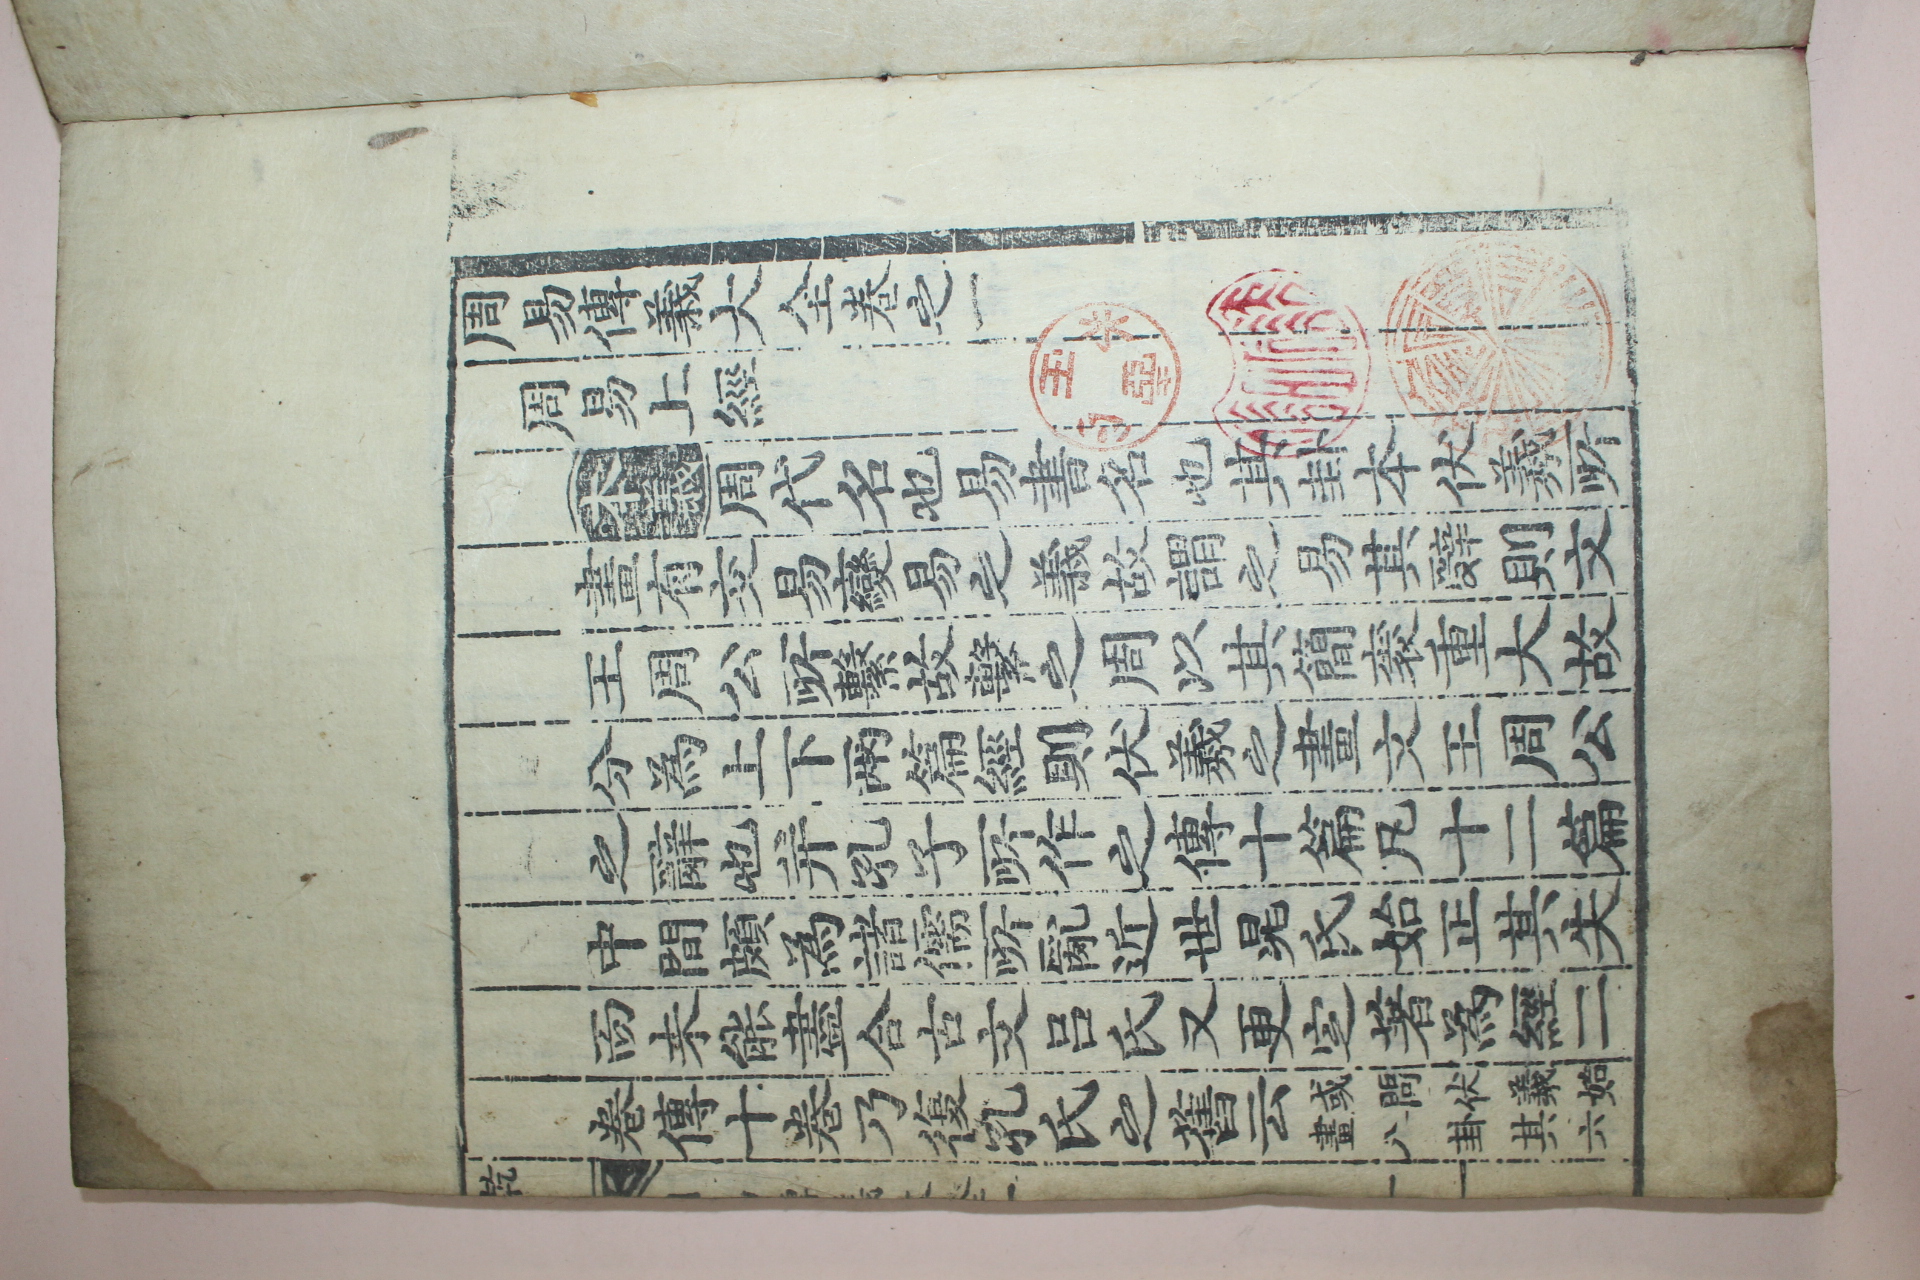 周易傳義大全卷之一
周易上經
本義周代名也易書名也其卦本伏羲所
畫有交易變易之義故謂之易其辭則文
王周公所繫故繫之周以其簡袠重大故
分為上下兩篇經則伏羲之畫文王周公
之辭也并孔子所作之傳十篇凡十二篇
中間頗為諸儒所亂近世晁氏始正其失
而未能盡合古文呂氏又更定著為經二
卷傳十卷乃復孔氏之舊云或問伏羲始
畫八卦其六